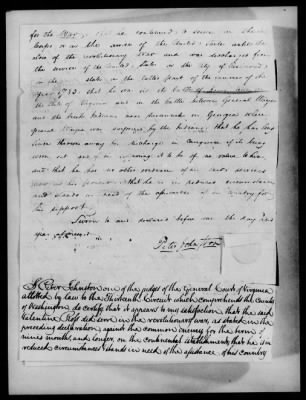 for the war, he continued to serve in the
corps or in the service of the United States until the
close of the revolutionary war and was discharged from
the service of the United States in the City of
in the state in the latter part of the summer of the
year 1783, that he was in the battle of
the State of Virginia and in the battle between General Wayne
and the Creek Indians near Savannah in Georgia where
General Wayne was surprised by the Indians; that he has long
since thrown away his discharge in consequence of its being
worn out and from supposing it to be of no value to him
and that he has no other evidence of his said services
now in his power; that he is in reduced circumstances
and stands in need of the assistance of his country for
his support.
Sworn to and declared before me the day and
year aforesaid
Peter Johnston
I Peter Johnston one of the judges of the General Court of Virginia
allotted by law to the Thirteenth Circuit which comprehends the County
of Washington do certify that it appears to my satisfaction that the said
Valentine did serve in the revolutionary war, as stated in the
preceding declaration, against the common enemy for the term of
nine months, and longer, on the continental establishment, that he is in
reduced circumstances & stands in need of the assistance of his country